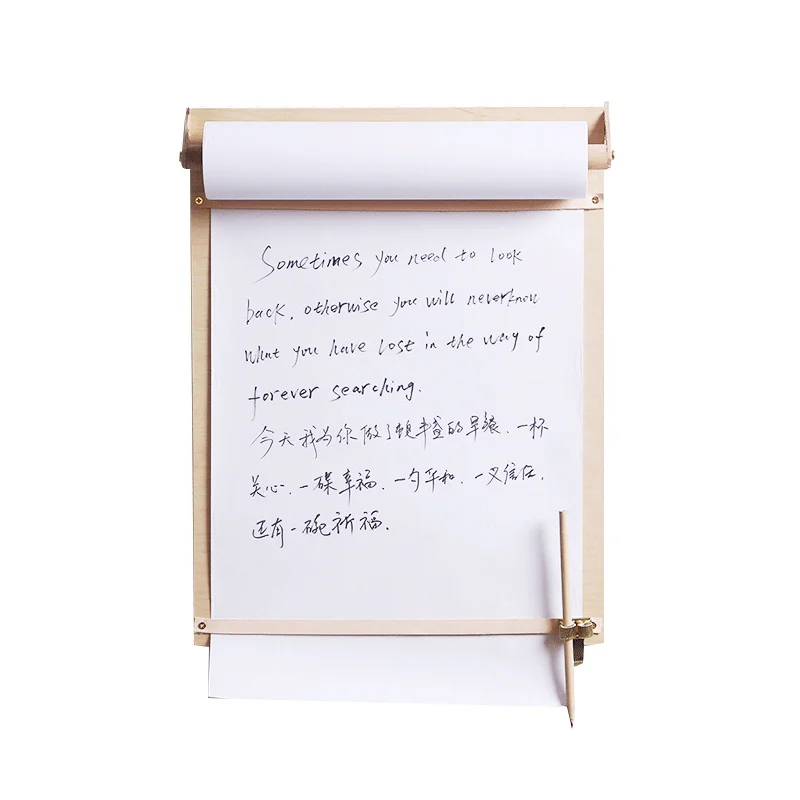 Sometimes you need to look
back, otherwise you will never know
what you have lost in the way of
forever searching.
今天我为你做了顿丰盛的早餐、一杯
关心、一碟幸福、一勺平和、一叉信任、
还有一碗祈福.